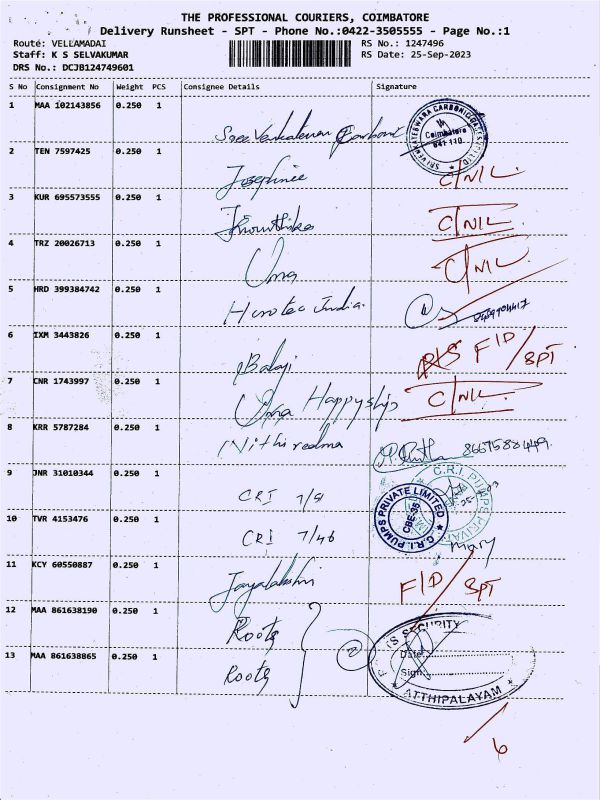 THE PROFESSIONAL COURIERS, COIMBATORE
Delivery Runsheet - SPT - Phone No.:0422-3505555 - Page No.:1
Route: VELLAMADAI RS No.: 1247496
Staff: K S SELVAKUMAR RS Date: 25-Sep-2023
DRS No.: DCJB124749601
S No Consignment No Weight PCS Consignee Details Signature
1 MAA 102143856 0.250 1
Sree Venkateswara Carbonic
SRI VENKATESWARA CARBONIC GASES (P) LTD
Coimbatore
641 110
2 TEN 7597425 0.250 1
Josephine C/NIL
3 KUR 695573555 0.250 1
Kiruthika C/NIL
4 TRZ 20026713 0.250 1
Uma C/NIL
5 HRD 399384742 0.250 1
Hirotec India.
6 IXM 3443826 0.250 1
Balaji F/D/SPT
7 CNR 1743997 0.250 1
Uma Happyship C/NIL
8 KRR 5787284 0.250 1
Nithi 8667588449
9 JNR 31010344 0.250 1
CRI 7/51
C.R.I. PUMPS PRIVATE
C.R.I. PUMPS PRIVATE LIMITED
CBE-35
10 TVR 4153476 0.250 1
CRI 7/46 Mary
11 KCY 60550887 0.250 1
Jayalakshmi F/D/SPT
12 MAA 861638190 0.250 1
Roots
13 MAA 861638865 0.250 1
Roots
2
IS SECURITY
Date:
Sign:
ATTHIPALAYAM
6